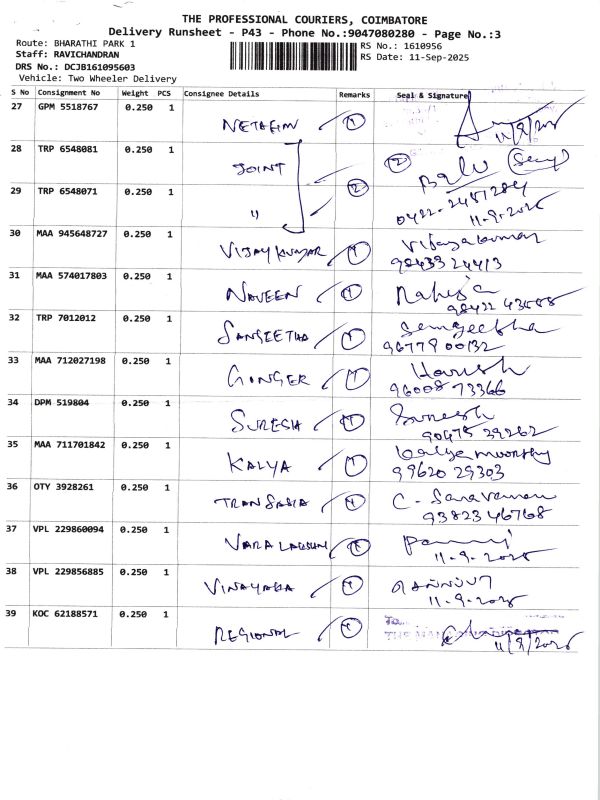 THE PROFESSIONAL COURIERS, COIMBATORE
Delivery Runsheet - P43 - Phone No.:9047080280 - Page No.:3
Route: BHARATHI PARK 1
Staff: RAVICHANDRAN
DRS No.: DCJB161095603
Vehicle: Two Wheeler Delivery
RS No.: 1610956
RS Date: 11-Sep-2025
S No Consignment No Weight PCS Consignee Details Remarks Seal & Signature
27 GPM 5518767 0.250 1
NETAFIM 1
11/9/2025
28 TRP 6548081 0.250 1
JOINT 2 Balu
29 TRP 6548071 0.250 1
" 2 0422-2481284
11-9-2025
30 MAA 945648727 0.250 1
VIJAYKUMAR 1 Vijayakumar
98433 24413
31 MAA 574017803 0.250 1
NAVEEN 1
32 TRP 7012012 0.250 1
SANGEETHA 1 Sangeetha
96779 00132
33 MAA 712027198 0.250 1
GINGER 1 Harish
96008 73366
34 DPM 519804 0.250 1
SURESH 1 Suresh
90475 39262
35 MAA 711701842 0.250 1
KALYA 1 Kalyamoorthy
99620 29303
36 OTY 3928261 0.250 1
TRANSASIA 1 C. Saravanan
93823 46768
37 VPL 229860094 0.250 1
VARALAKSHMI 1
11-9-2025
38 VPL 229856885 0.250 1
VINAYAGA 1
11-9-2025
39 KOC 62188571 0.250 1
REGIONAL 1
To
11/9/2025